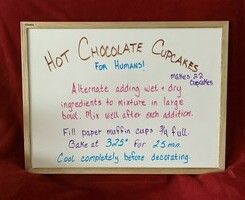 HOT CHOCOLATE CUPCAKES
FOR HUMANS!
makes 22
cupcakes
Alternate adding wet + dry
ingredients to mixture in large
bowl. Mix well after each addition.
Fill paper muffin cups 3/4 full.
Bake at 325° for 25 min
Cool completely before decorating.